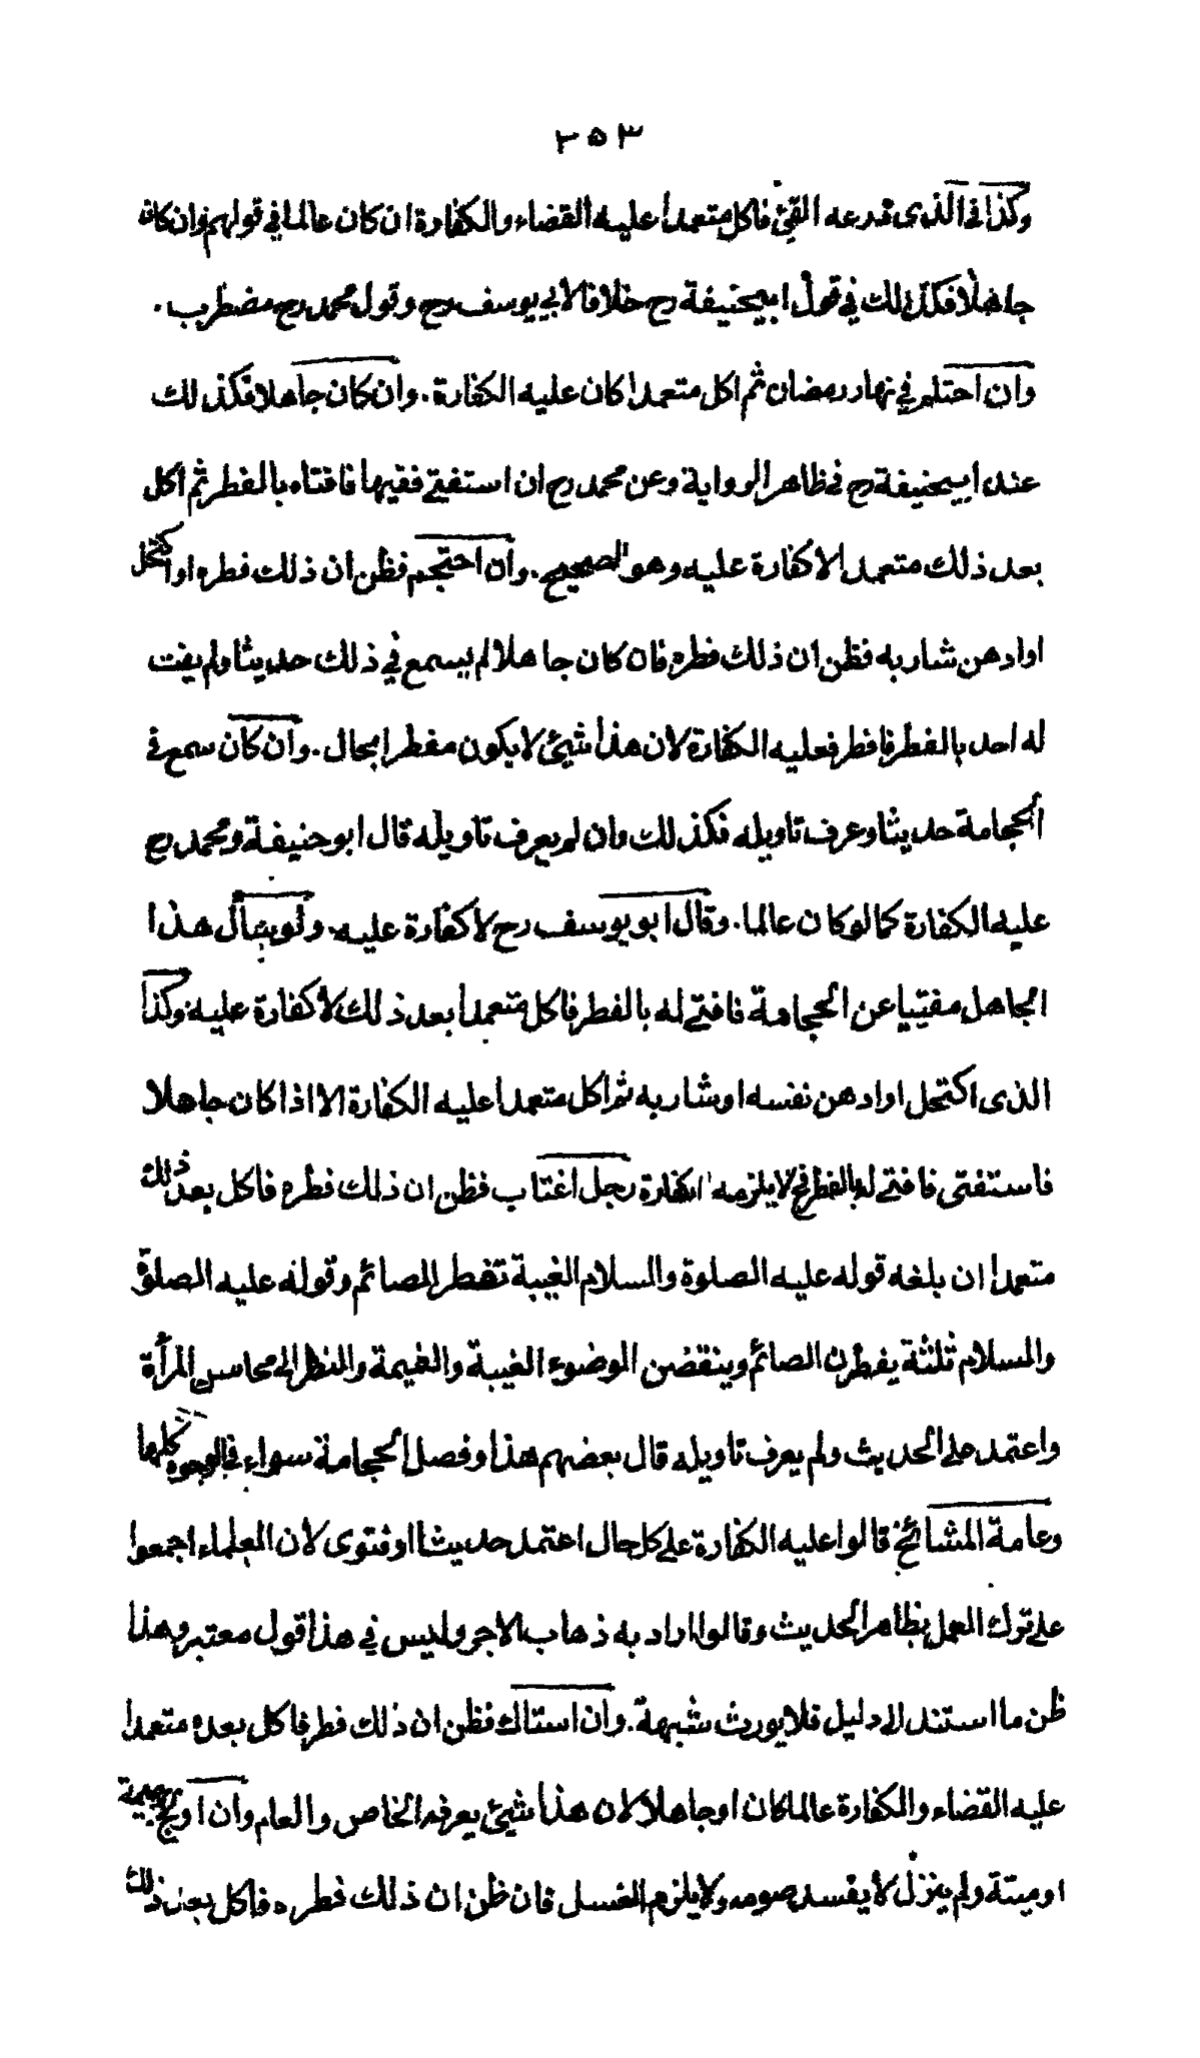 ٢٥٣
وكذا فى الذى ذرعه القئ فاكل متعمدا عليه القضاء والكفارة ان كان عالما في قولهم وان كان
جاهلا فكذلك في قول ابيحنيفة رح خلافا لابي يوسف رح وقول محمد رح مضطرب .
وان احتلم في نهار رمضان ثم اكل متعمدا كان عليه الكفارة . وان كان جاهلا فكذلك
عند ابيحنيفة رح فى ظاهر الرواية وعن محمد رح ان استفتى فقيها فافتاه بالفطر ثم اكل
بعد ذلك متعمدا لا كفارة عليه وهو الصحيح . وان احتجم فظن ان ذلك فطره او اكتحل
او ادهن شاربه فظن ان ذلك فطره فان كان جاهلا لم يسمع في ذلك حديثا ولم يفت
له احد بالفطر فافطر فعليه الكفارة لان هذا شيئ لا يكون مفطرا بحال . وان كان سمع فى
الحجامة حديثا وعرف تاويله فكذلك وان لم يعرف تاويله قال ابو حنيفة ومحمد رح
عليه الكفارة كما لو كان عالما . وقال ابو يوسف رح لا كفارة عليه . ولو سأل هذا
الجاهل مفتيا عن الحجامة فافتى له بالفطر فاكل متعمدا بعد ذلك لا كفارة عليه وكذا
الذى اكتحل او ادهن نفسه او شاربه ثم اكل متعمدا عليه الكفارة الا اذا كان جاهلا
فاستفتى فافتى له بالفطر فح لا يلزمه الكفارة رجل اغتاب فظن ان ذلك فطره فاكل بعد ذلك
متعمدا ان بلغه قوله عليه الصلوة والسلام الغيبة تفطر الصائم وقوله عليه الصلوة
والسلام ثلثة يفطرن الصائم وينقضن الوضوء الغيبة والنميمة والنظر الى محاسن المرأة
واعتمد على الحديث ولم يعرف تاويله قال بعضهم هذا وفصل الحجامة سواء في الوجوه كلها
وعامة المشائخ قالوا عليه الكفارة على كل حال اعتمد حديثا او فتوى لان العلماء اجمعوا
على ترك العمل بظاهر الحديث وقالوا اراد به ذهاب الاجر وليس في هذا قول معتبر وهذا
ظن ما استند الى دليل فلا يورث شبهة . وان استاك فظن ان ذلك فطر فاكل بعده متعمدا
عليه القضاء والكفارة عالما كان او جاهلا لان هذا شيئ يعرفه الخاص والعام وان اولج بهيمة
او ميتة ولم ينزل لا يفسد صومه ولا يلزم الغسل فان ظن ان ذلك فطره فاكل بعد ذلك